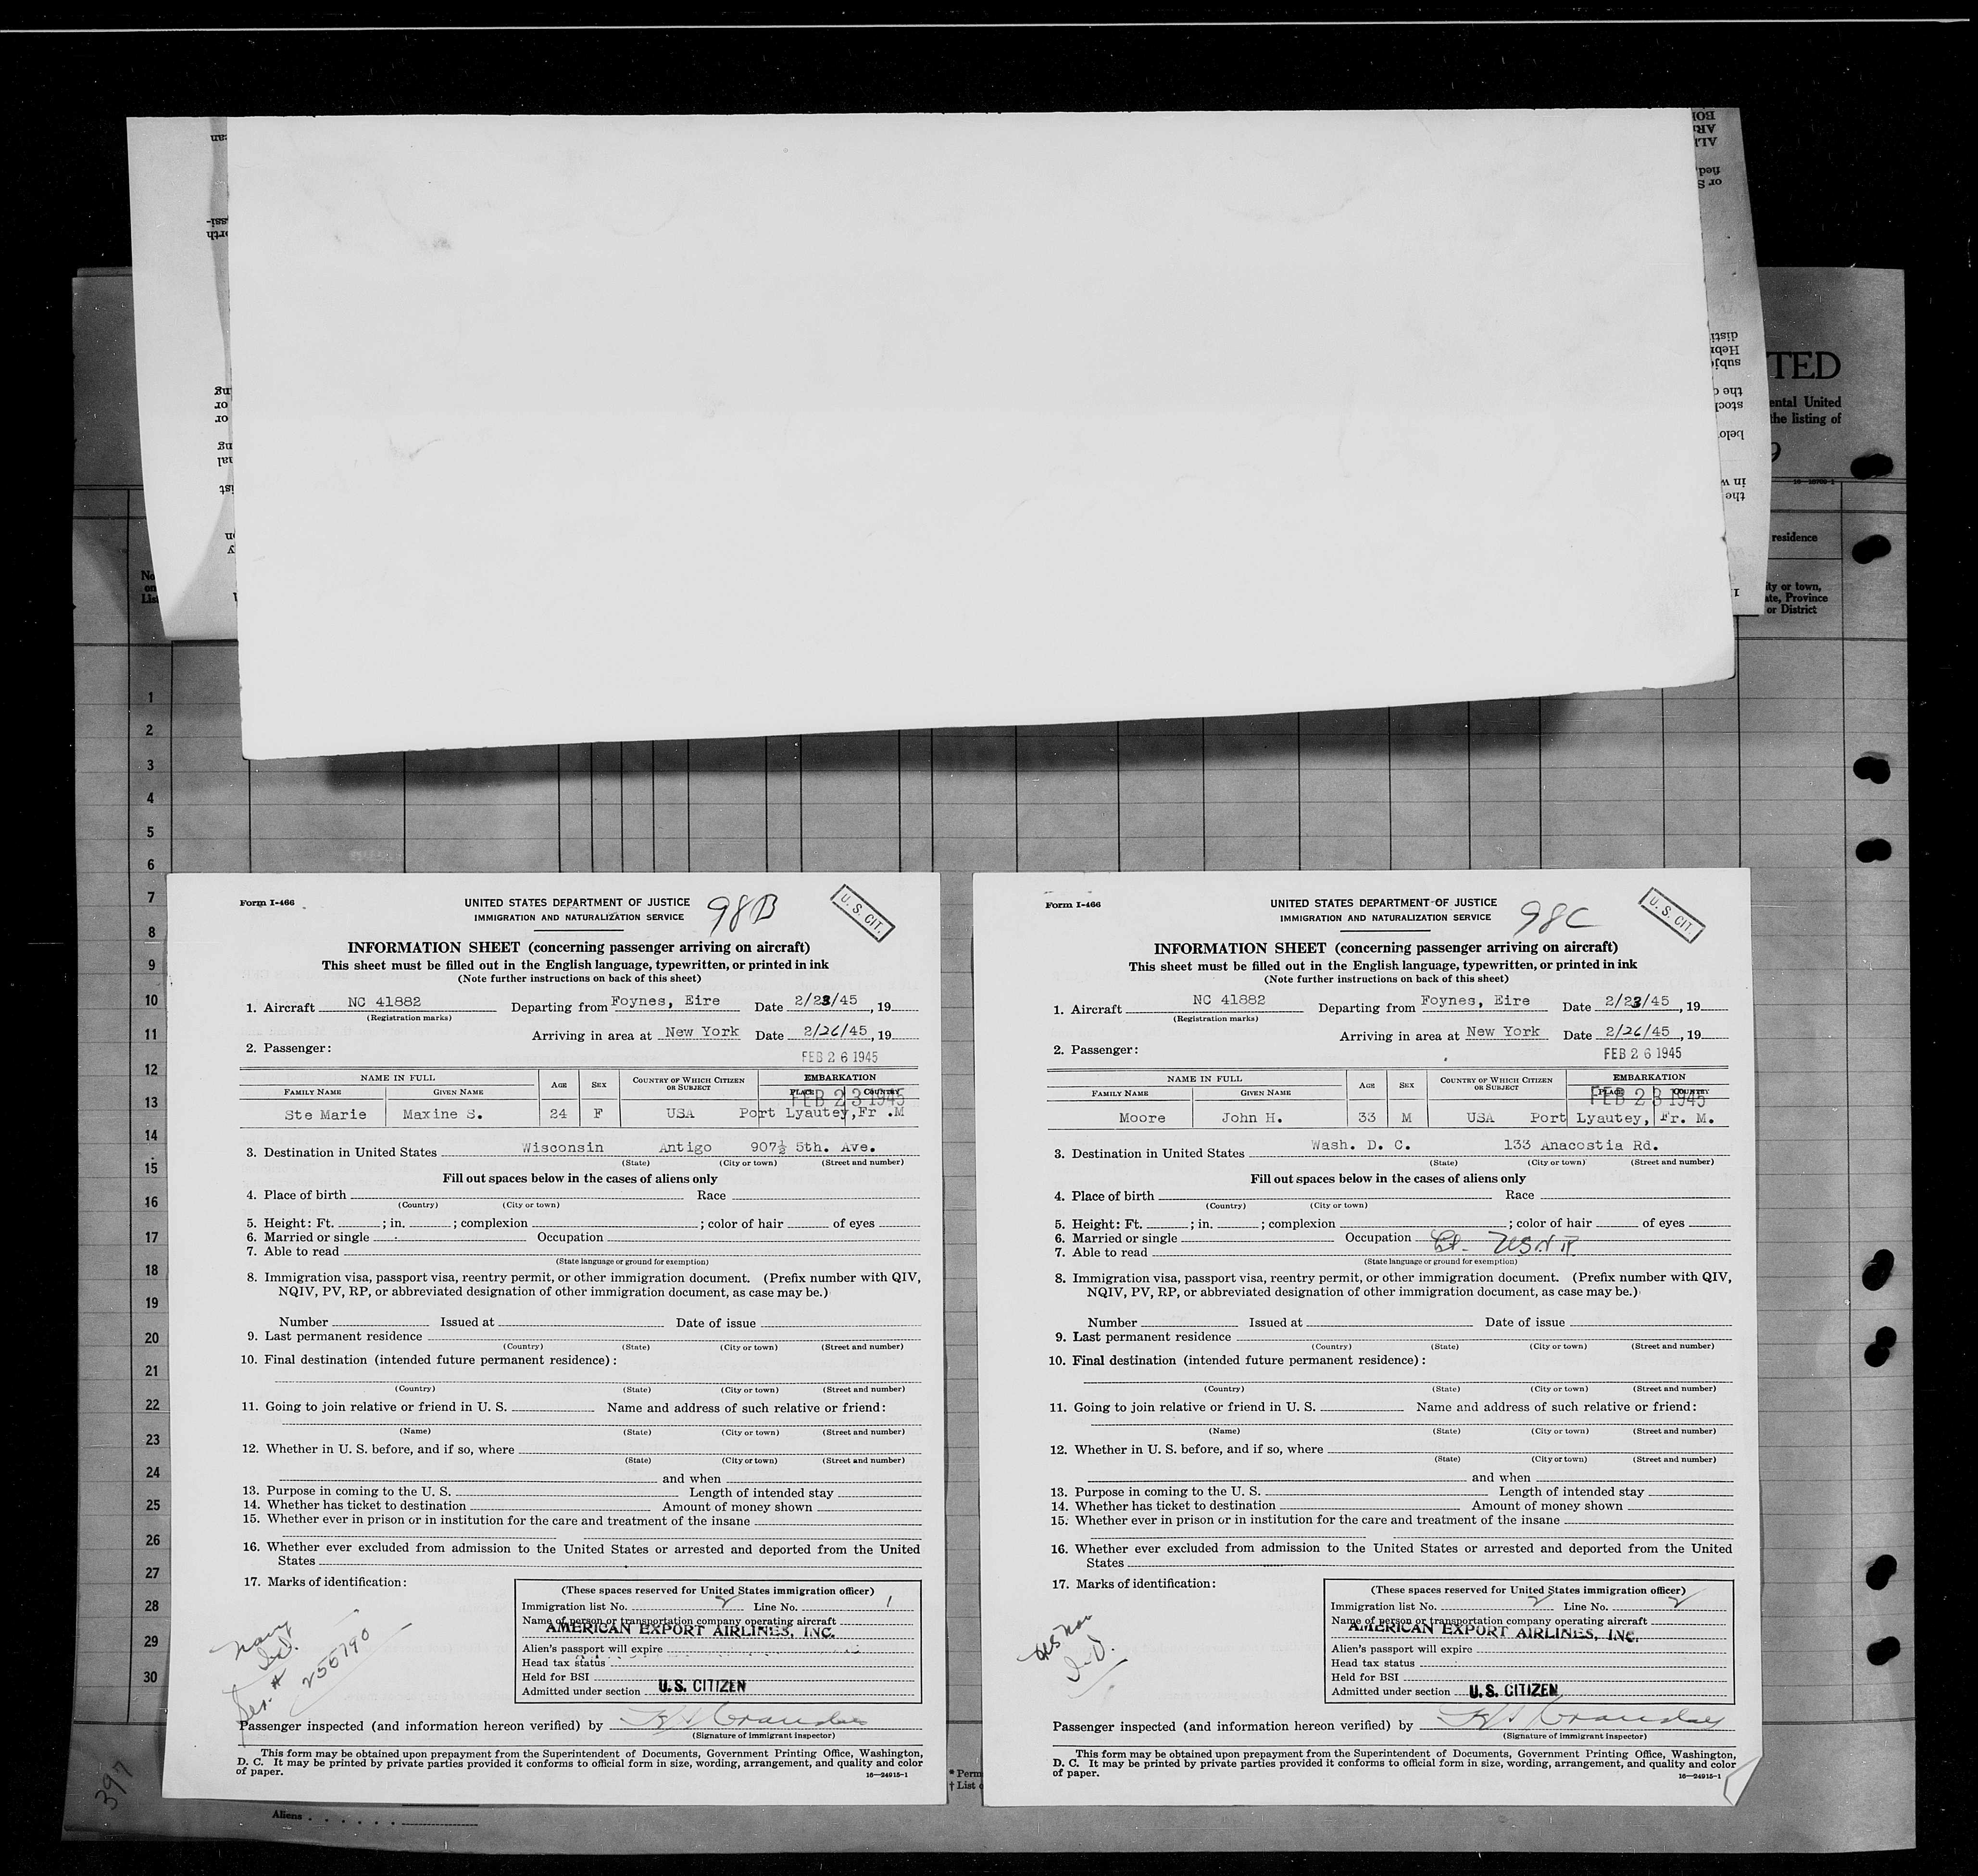 TED
ental United
the listing of
9
16—10700-1
residence
ity or town,
ate, Province
or District
No
on
List
1
2
3
4
5
6
7
8
9
10
11
12
13
14
15
16
17
18
19
20
21
22
23
24
25
26
27
28
29
30
397
Aliens
* Perm
† List o
Form I-466
UNITED STATES DEPARTMENT OF JUSTICE
IMMIGRATION AND NATURALIZATION SERVICE
98B
U. S. CIT.
INFORMATION SHEET (concerning passenger arriving on aircraft)
This sheet must be filled out in the English language, typewritten, or printed in ink
(Note further instructions on back of this sheet)
1. Aircraft NC 41882 Departing from Foynes, Eire Date 2/23/45, 19
(Registration marks)
Arriving in area at New York Date 2/26/45, 19
2. Passenger:
FEB 26 1945
NAME IN FULL AGE SEX COUNTRY OF WHICH CITIZEN OR SUBJECT EMBARKATION
FAMILY NAME GIVEN NAME PLACE COUNTRY
FEB 23 1945
Ste Marie Maxine S. 24 F USA Port Lyautey, Fr .M
3. Destination in United States Wisconsin Antigo 907½ 5th. Ave.
(State) (City or town) (Street and number)
Fill out spaces below in the cases of aliens only
4. Place of birth Race
(Country) (City or town)
5. Height: Ft. ; in. ; complexion ; color of hair of eyes
6. Married or single Occupation
7. Able to read
(State language or ground for exemption)
8. Immigration visa, passport visa, reentry permit, or other immigration document. (Prefix number with QIV,
NQIV, PV, RP, or abbreviated designation of other immigration document, as case may be.)
Number Issued at Date of issue
9. Last permanent residence
(Country) (State) (City or town) (Street and number)
10. Final destination (intended future permanent residence):
(Country) (State) (City or town) (Street and number)
11. Going to join relative or friend in U. S. Name and address of such relative or friend:
(Name) (State) (City or town) (Street and number)
12. Whether in U. S. before, and if so, where
(State) (City or town) (Street and number)
and when
13. Purpose in coming to the U. S. Length of intended stay
14. Whether has ticket to destination Amount of money shown
15. Whether ever in prison or in institution for the care and treatment of the insane
16. Whether ever excluded from admission to the United States or arrested and deported from the United
States
17. Marks of identification:
Navy
I.D.
Ser. #
255790
(These spaces reserved for United States immigration officer)
Immigration list No. 2 Line No. 1
Name of person or transportation company operating aircraft
AMERICAN EXPORT AIRLINES, INC.
Alien's passport will expire
Head tax status
Held for BSI
Admitted under section U. S. CITIZEN
Passenger inspected (and information hereon verified) by
(Signature of immigrant inspector)
This form may be obtained upon prepayment from the Superintendent of Documents, Government Printing Office, Washington,
D. C. It may be printed by private parties provided it conforms to official form in size, wording, arrangement, and quality and color
of paper.
16—24915-1
Form I-466
UNITED STATES DEPARTMENT OF JUSTICE
IMMIGRATION AND NATURALIZATION SERVICE
98C
U. S. CIT.
INFORMATION SHEET (concerning passenger arriving on aircraft)
This sheet must be filled out in the English language, typewritten, or printed in ink
(Note further instructions on back of this sheet)
1. Aircraft NC 41882 Departing from Foynes, Eire Date 2/23/45, 19
(Registration marks)
Arriving in area at New York Date 2/26/45, 19
2. Passenger:
FEB 26 1945
NAME IN FULL AGE SEX COUNTRY OF WHICH CITIZEN OR SUBJECT EMBARKATION
FAMILY NAME GIVEN NAME PLACE COUNTRY
FEB 23 1945
Moore John H. 33 M USA Port Lyautey, Fr. M.
3. Destination in United States Wash. D. C. 133 Anacostia Rd.
(State) (City or town) (Street and number)
Fill out spaces below in the cases of aliens only
4. Place of birth Race
(Country) (City or town)
5. Height: Ft. ; in. ; complexion ; color of hair of eyes
6. Married or single Occupation Lt. USNR
7. Able to read
(State language or ground for exemption)
8. Immigration visa, passport visa, reentry permit, or other immigration document. (Prefix number with QIV,
NQIV, PV, RP, or abbreviated designation of other immigration document, as case may be.)
Number Issued at Date of issue
9. Last permanent residence
(Country) (State) (City or town) (Street and number)
10. Final destination (intended future permanent residence):
(Country) (State) (City or town) (Street and number)
11. Going to join relative or friend in U. S. Name and address of such relative or friend:
(Name) (State) (City or town) (Street and number)
12. Whether in U. S. before, and if so, where
(State) (City or town) (Street and number)
and when
13. Purpose in coming to the U. S. Length of intended stay
14. Whether has ticket to destination Amount of money shown
15. Whether ever in prison or in institution for the care and treatment of the insane
16. Whether ever excluded from admission to the United States or arrested and deported from the United
States
17. Marks of identification:
US Nav
I.D.
(These spaces reserved for United States immigration officer)
Immigration list No. 2 Line No. 2
Name of person or transportation company operating aircraft
AMERICAN EXPORT AIRLINES, INC.
Alien's passport will expire
Head tax status
Held for BSI
Admitted under section U. S. CITIZEN
Passenger inspected (and information hereon verified) by
(Signature of immigrant inspector)
This form may be obtained upon prepayment from the Superintendent of Documents, Government Printing Office, Washington,
D. C. It may be printed by private parties provided it conforms to official form in size, wording, arrangement, and quality and color
of paper.
16—24915-1